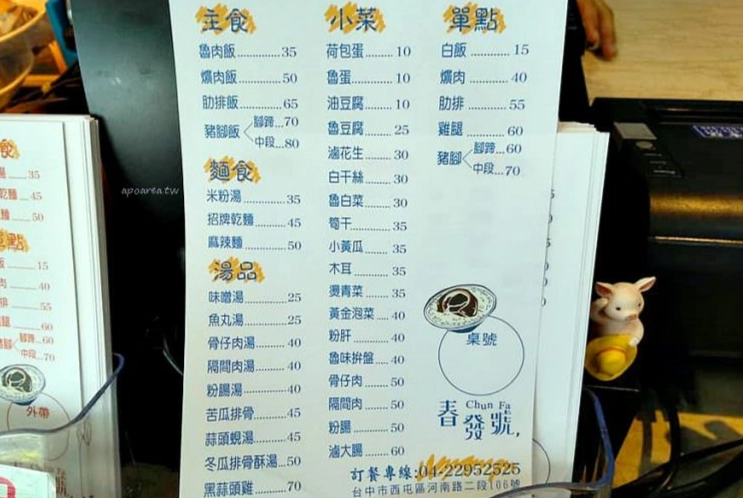 主食
魯肉飯............35
爌肉飯............50
肋排飯............65
豬腳飯
腳蹄...70
中段...80
麵食
米粉湯............35
招牌乾麵.........45
麻辣麵............50
湯品
味噌湯............25
魚丸湯............25
骨仔肉湯.........40
隔間肉湯.........40
粉腸湯............40
苦瓜排骨.........45
蒜頭蜆湯.........45
冬瓜排骨酥湯...50
黑蒜頭雞.........70
小菜
荷包蛋.........10
魯蛋............10
油豆腐.........10
魯豆腐.........25
滷花生.........30
白干絲.........30
魯白菜.........30
筍干............35
小黃瓜.........35
木耳............35
燙青菜.........35
黃金泡菜......40
粉肝............40
魯味拚盤......40
骨仔肉.........50
隔間肉.........50
粉腸............50
滷大腸.........60
單點
白飯............15
爌肉............40
肋排............55
雞腿............60
豬腳
腳蹄...60
中段...70
桌號
春發號
Chun Fa
訂餐專線:04-22952525
台中市西屯區河南路二段106號
apoarea.tw
35
45
50
單點
15
40
55
60
腳蹄...60
中段...70
外帶